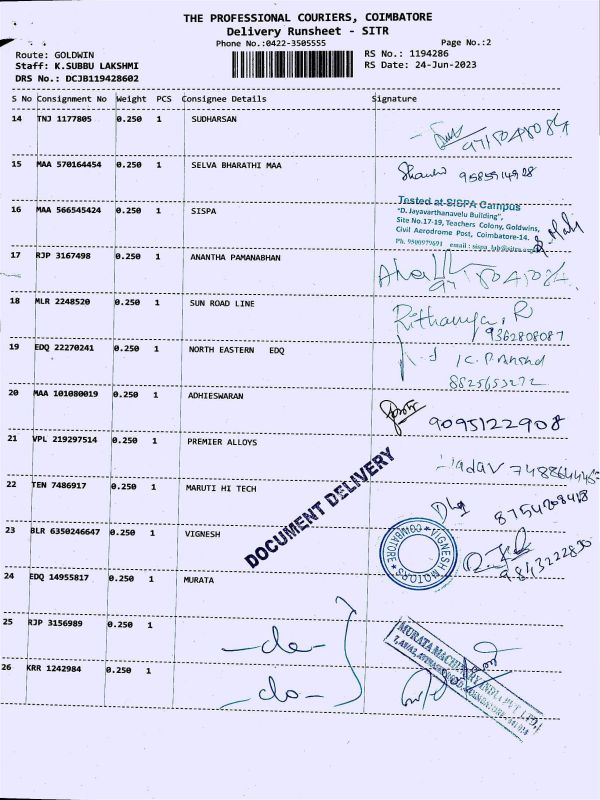 THE PROFESSIONAL COURIERS, COIMBATORE
Delivery Runsheet - SITR
Phone No.:0422-3505555 Page No.:2
Route: GOLDWIN RS No.: 1194286
Staff: K.SUBBU LAKSHMI RS Date: 24-Jun-2023
DRS No.: DCJB119428602
S No Consignment No Weight PCS Consignee Details Signature
14 TNJ 1177805 0.250 1 SUDHARSAN
15 MAA 570164454 0.250 1 SELVA BHARATHI MAA
16 MAA 566545424 0.250 1 SISPA
Tested at SISPA Campus
"D. Jayavarthanavelu Building",
Site No.17-19, Teachers Colony, Goldwins,
Civil Aerodrome Post, Coimbatore-14.
17 RJP 3167498 0.250 1 ANANTHA PAMANABHAN
18 MLR 2248520 0.250 1 SUN ROAD LINE
Rithanya. R
9362808087
19 EDQ 22270241 0.250 1 NORTH EASTERN EDQ
20 MAA 101080019 0.250 1 ADHIESWARAN
9095122908
21 VPL 219297514 0.250 1 PREMIER ALLOYS
22 TEN 7486917 0.250 1 MARUTI HI TECH
8754208418
DOCUMENT DELIVERY
23 BLR 6350246647 0.250 1 VIGNESH
VIGNESH MOTORS
COIMBATORE
9843222800
24 EDQ 14955817 0.250 1 MURATA
25 RJP 3156989 0.250 1 -do-
26 KRR 1242984 0.250 1 -do-
MURATA MACHINERY INDIA PVT LTD.,